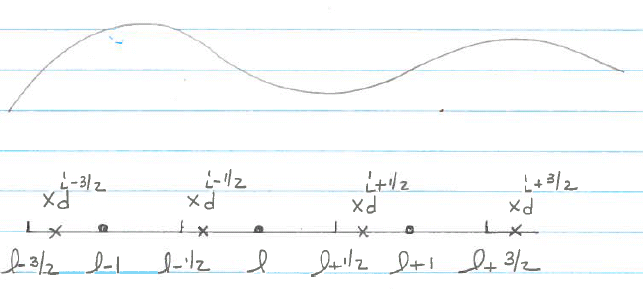 x_d^{i-3/2} x_d^{i-1/2} x_d^{i+1/2} x_d^{i+3/2}
l-3/2 l-1 l-1/2 l l+1/2 l+1 l+3/2